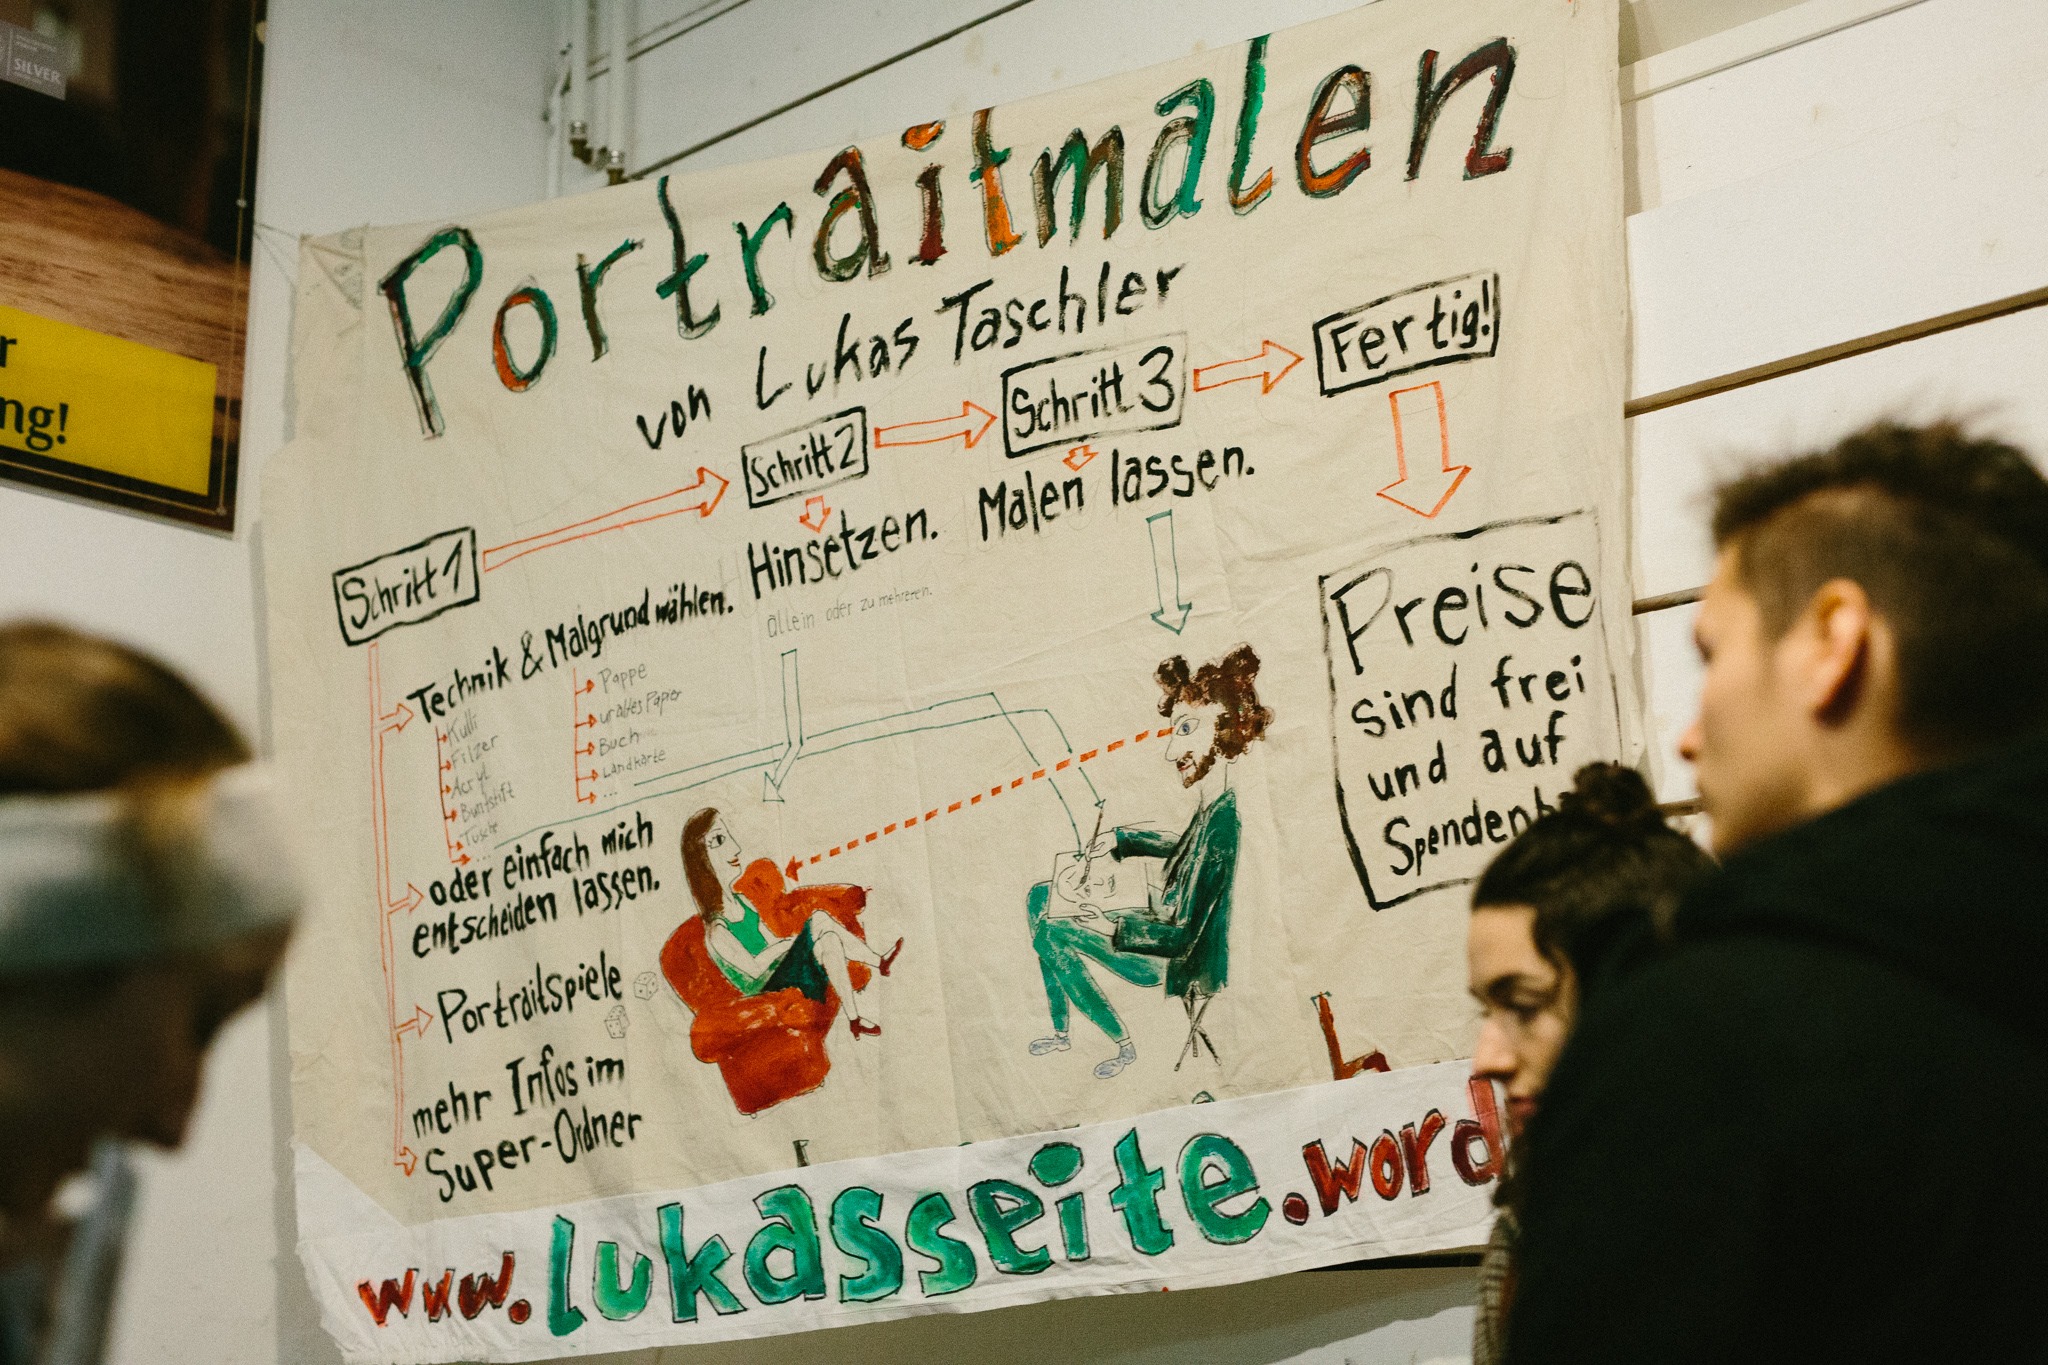 SILVER
r
ng!
Portraitmalen
von Lukas Taschler
Schritt 1
Schritt 2
Schritt 3
Fertig!
Technik & Malgrund wählen.
Kulli
Filzer
Acryl
Buntstift
Tusche
...
Pappe
uraltes Papier
Buch
Landkarte
...
oder einfach mich
entscheiden lassen.
Portraitspiele
mehr Infos im
Super-Ordner
Hinsetzen.
allein oder zu mehreren.
Malen lassen.
Preise
sind frei
und auf
Spenden
www.lukasseite.word